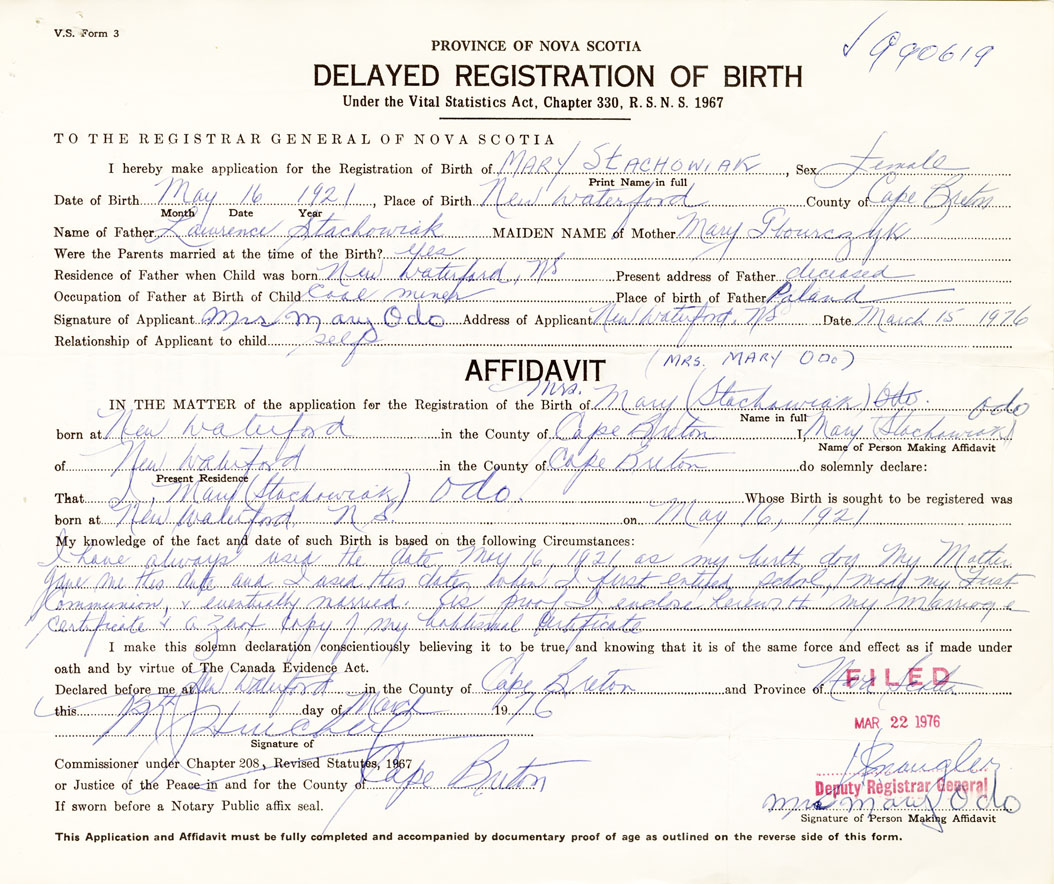 V.S. Form 3
PROVINCE OF NOVA SCOTIA
990619
DELAYED REGISTRATION OF BIRTH
Under the Vital Statistics Act, Chapter 330, R. S. N. S. 1967
TO THE REGISTRAR GENERAL OF NOVA SCOTIA
I hereby make application for the Registration of Birth of MARY STACHOWIAK, Sex Female
Print Name in full
Date of Birth May 16 1921, Place of Birth New Waterford County of Cape Breton
Month Date Year
Name of Father Lawrence Stachowiak MAIDEN NAME of Mother Mary
Were the Parents married at the time of the Birth? yes
Residence of Father when Child was born New Waterford, NS Present address of Father deceased
Occupation of Father at Birth of Child Coal miner Place of birth of Father Poland
Signature of Applicant Mrs Mary Odo Address of Applicant New Waterford, NS Date March 15 1976
Relationship of Applicant to child self
AFFIDAVIT (MRS. MARY ODO)
IN THE MATTER of the application for the Registration of the Birth of Mrs. Mary (Stachowiak) Odo. Odo
Name in full
born at New Waterford in the County of Cape Breton I Mary (Stachowiak)
Name of Person Making Affidavit
of New Waterford in the County of Cape Breton do solemnly declare:
Present Residence
That I, Mary (Stachowiak) Odo. Whose Birth is sought to be registered was
born at New Waterford N.S. on May 16, 1921
My knowledge of the fact and date of such Birth is based on the following Circumstances:
I have always used the date May 16, 1921 as my birth day My Mother
gave me this date and I used this date when I first entered school, made my First
Communion, & eventually married. As proof I enclose herewith my Marriage
Certificate & a Zerox Copy of my Baptismal Certificate
I make this solemn declaration conscientiously believing it to be true, and knowing that it is of the same force and effect as if made under
oath and by virtue of The Canada Evidence Act.
Declared before me at New Waterford in the County of Cape Breton and Province of Nova Scotia
FILED
this day of March 1976
MAR 22 1976
Signature of
Commissioner under Chapter 208, Revised Statutes, 1967
or Justice of the Peace in and for the County of Cape Breton
Deputy Registrar General
If sworn before a Notary Public affix seal.
Mrs Mary Odo
Signature of Person Making Affidavit
This Application and Affidavit must be fully completed and accompanied by documentary proof of age as outlined on the reverse side of this form.